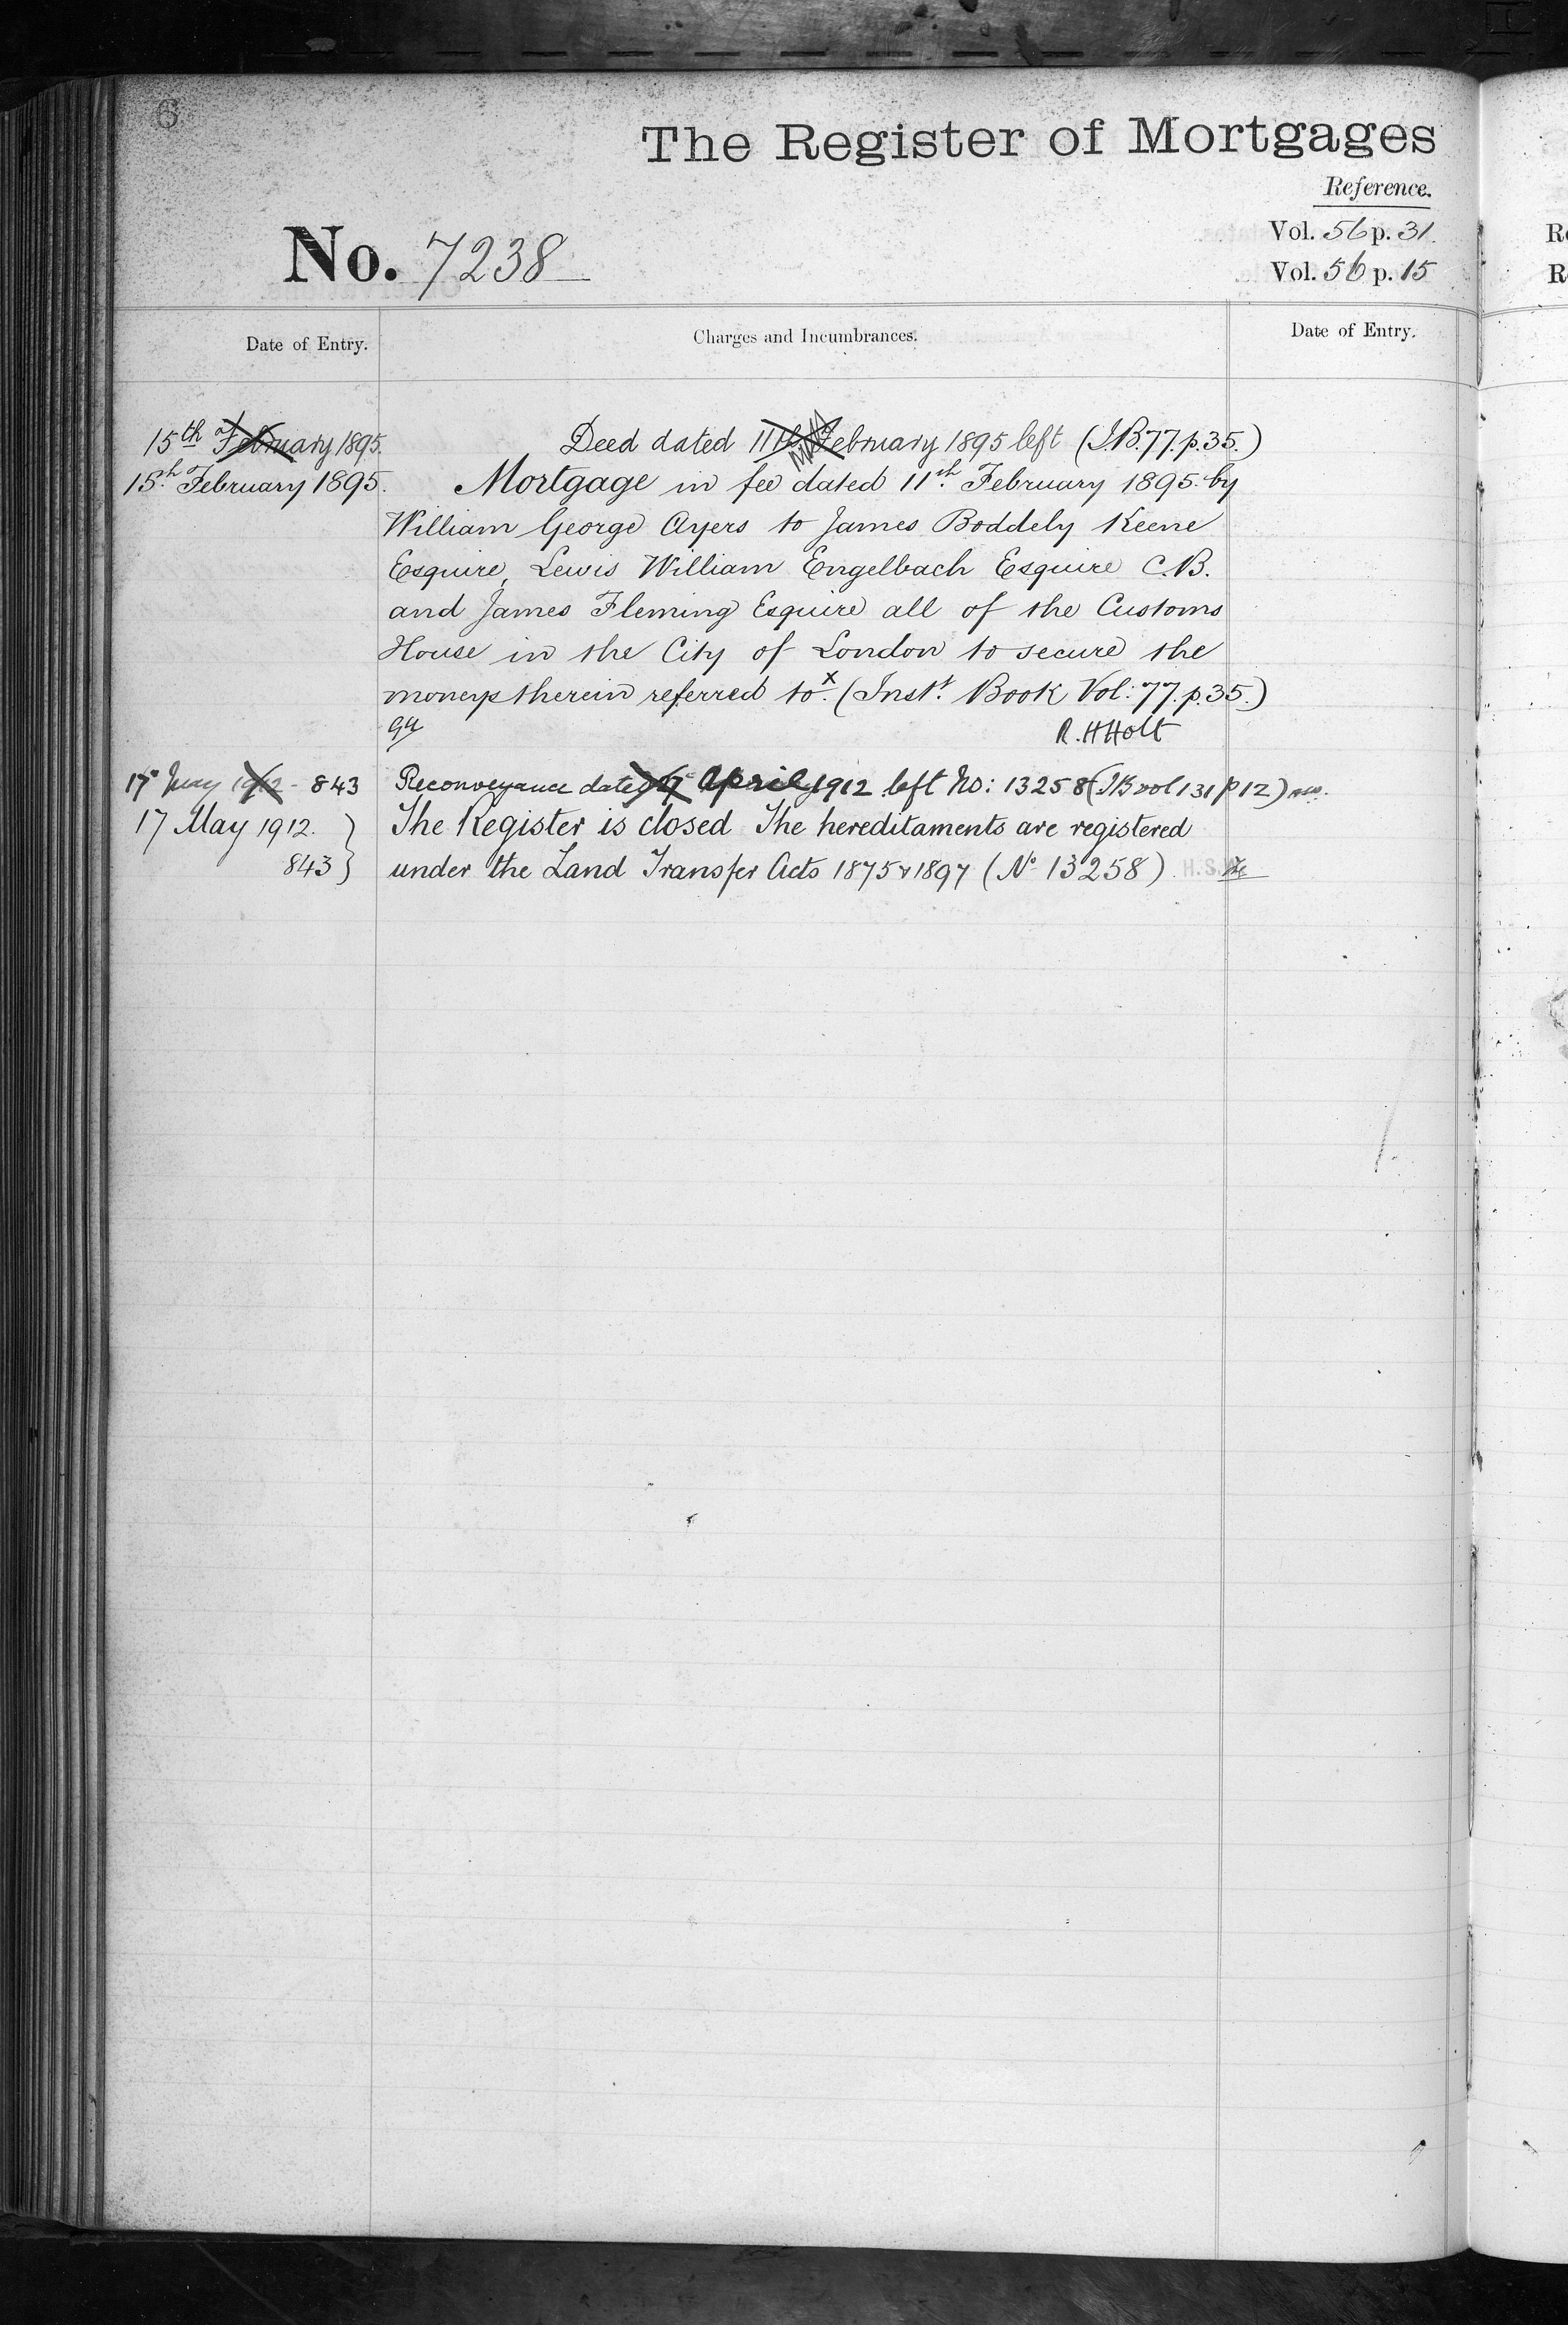 6
The Register of Mortgages
Reference.
No. 7238
Vol. 56 p. 31.
Vol. 56 p. 15
Date of Entry.
Charges and Incumbrances.
Date of Entry.
15th February 1895. Deed dated 11th February 1895 left (I.B. 77. p. 35.)
15th February 1895. Mortgage in fee dated 11th February 1895 by
William George Ayers to James Boddely Keene
Esquire, Lewis William Engelbach Esquire C.B.
and James Fleming Esquire all of the Customs
House in the City of London to secure the
moneys therein referred to. x (Inst. Book Vol: 77. p. 35.)
R. H Holt
17 May 1912 - 843 Reconveyance dated April 1912 left No: 13258 (IB vol 131 p 12)
17 May 1912. } The Register is closed The hereditaments are registered
843 } under the Land Transfer Acts 1875 & 1897 (No 13258) H.S.